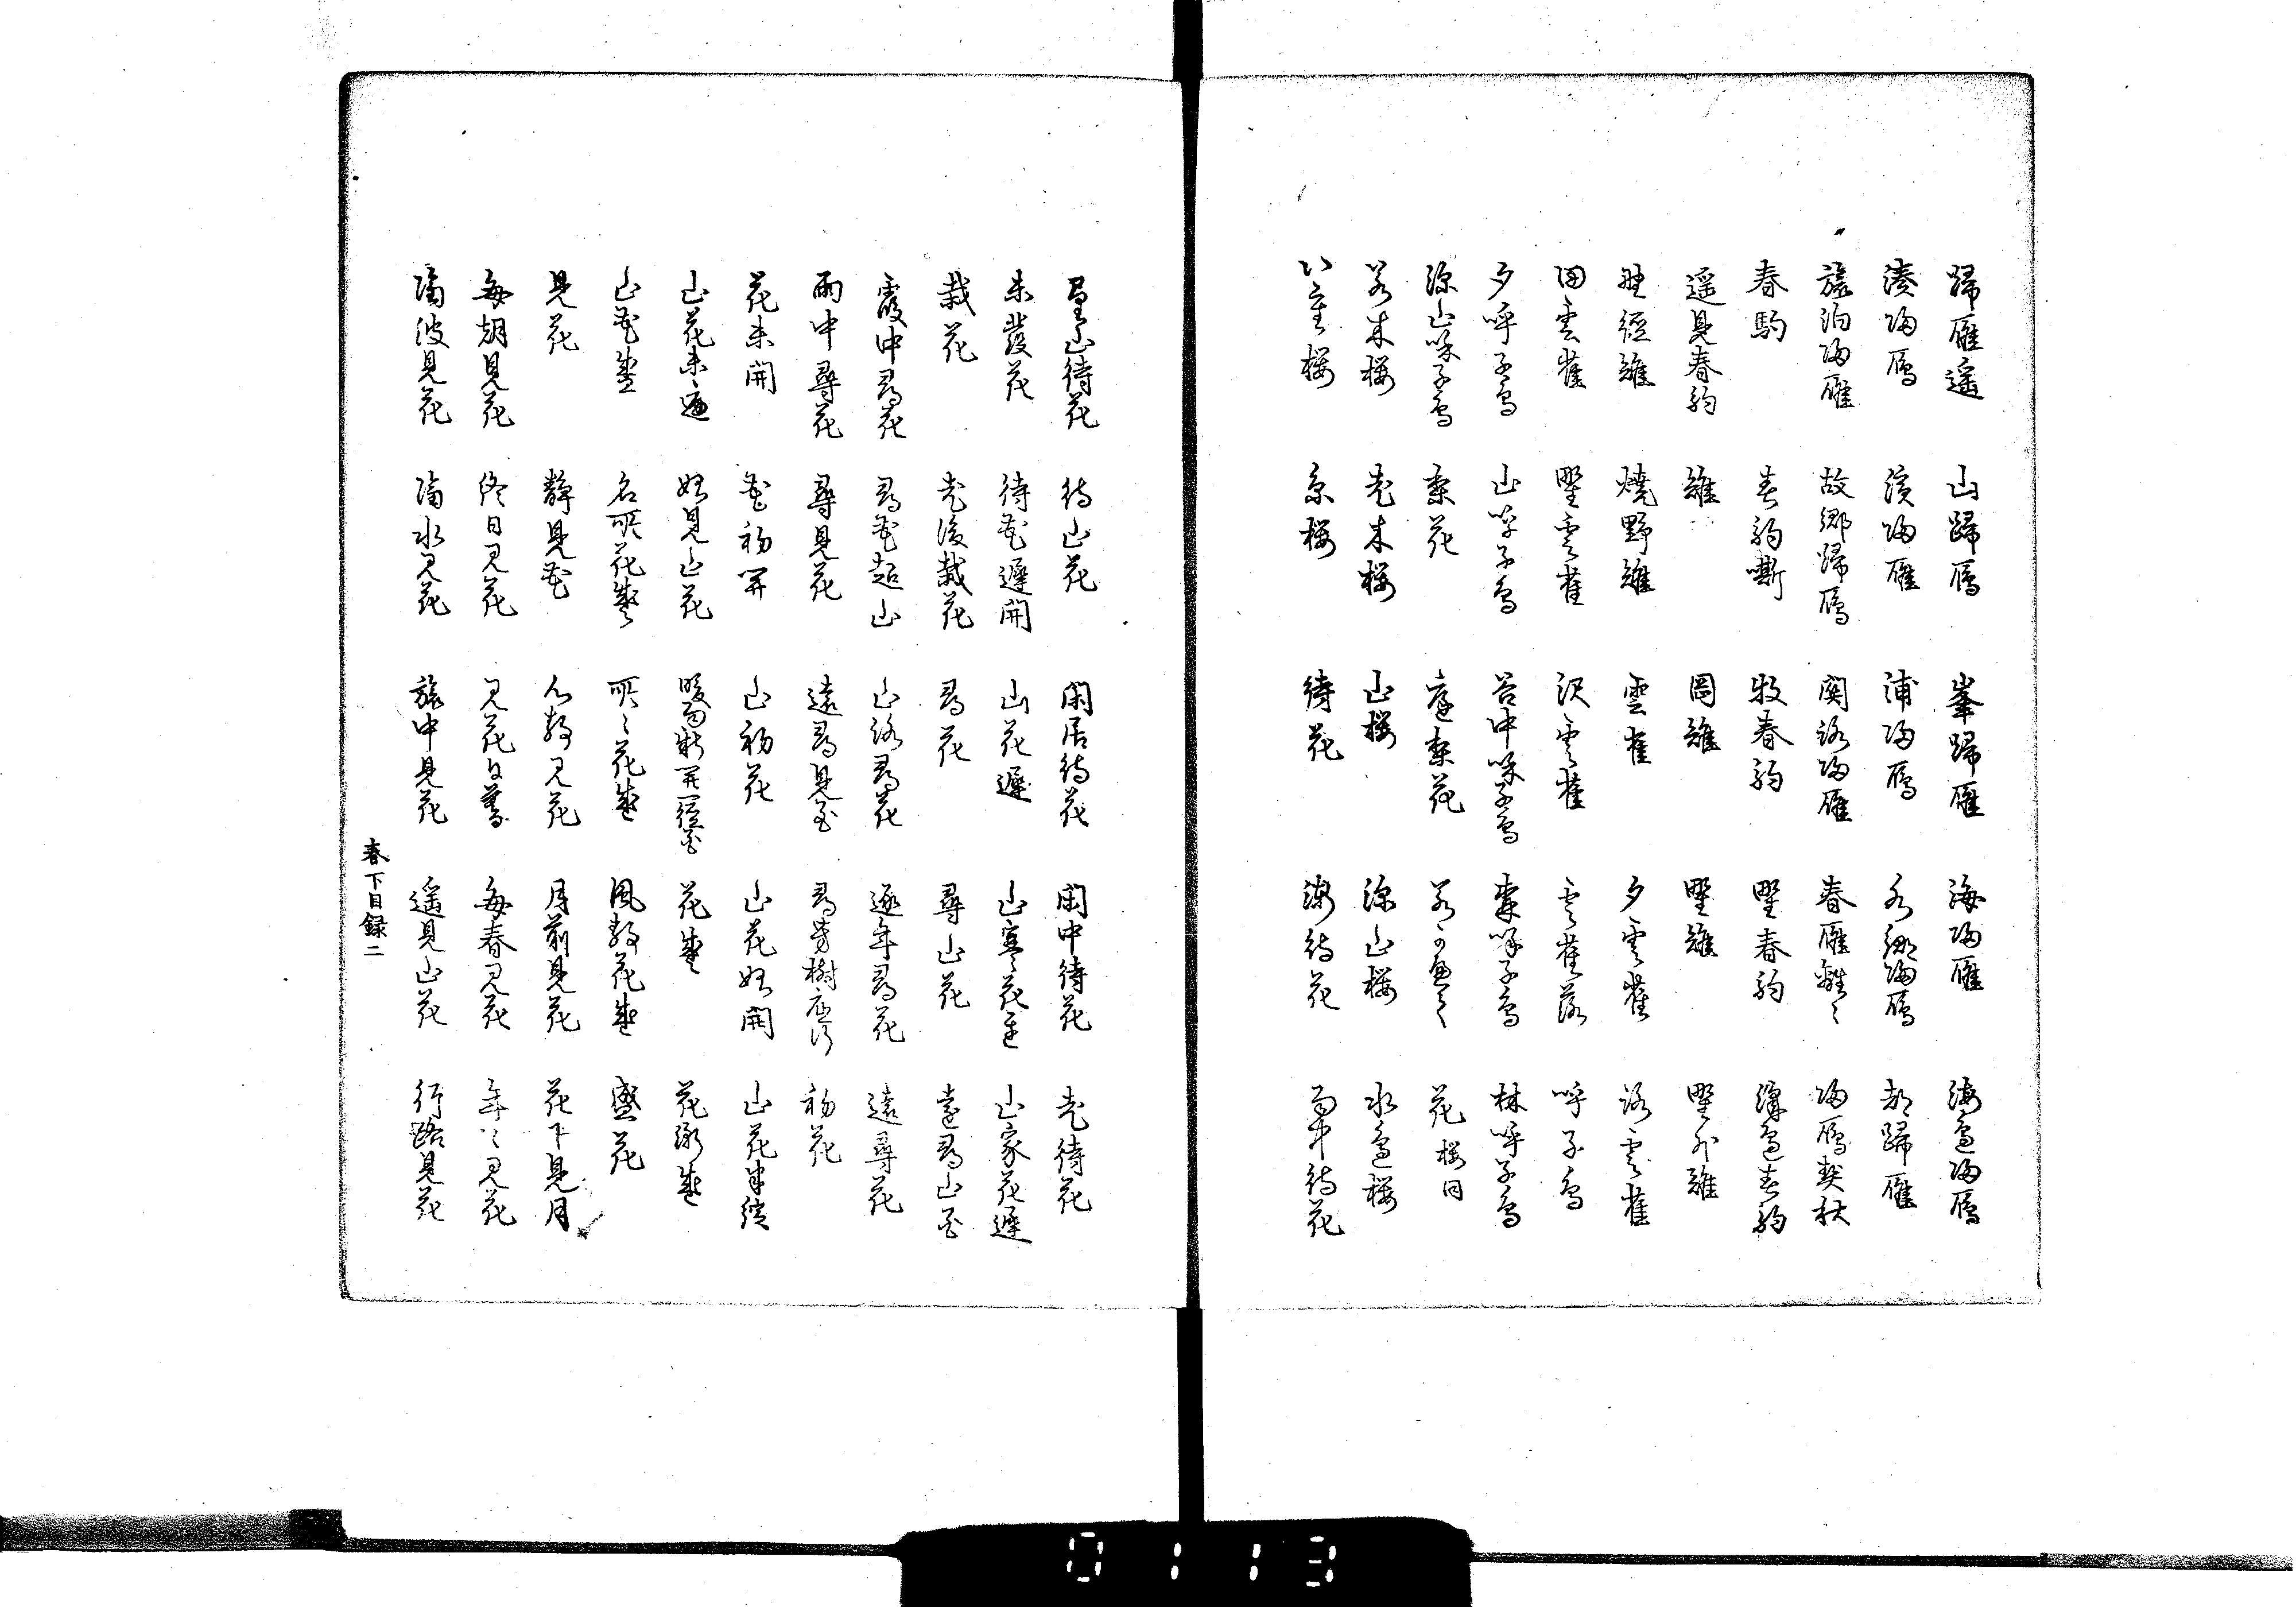 歸雁遥 山歸雁 峯歸雁 海帰雁 海邊帰雁
湊帰雁 濱帰雁 浦帰雁 水郷帰雁 都歸雁
旅泊帰雁 故郷歸雁 関路帰雁 春雁離々 帰雁契秋
春駒 春駒嘶 牧春駒 野春駒 澤邊春駒
遥見春駒 雉 岡雉 野雉 野外雉
野径雉 焼野雉 雲雀 夕雲雀 路雲雀
田雲雀 野雲雀 沢雲雀 雲雀落 呼子鳥
夕呼子鳥 山呼子鳥 谷中呼子鳥 杜呼子鳥 林呼子鳥
深山呼子鳥 梨花 庭梨花 花桜同
若木桜 老木桜 山桜 深山桜 水邊桜
八重桜 糸桜 待花 漸待花 雨中待花
望山待花 待山花 閑居待花 閑中待花 老待花
未發花 待花遲開 山花遲 山寒花遅 山家花遲
栽花 老後栽花 尋花 尋山花 遠尋山花
霞中尋花 尋花越山 山路尋花 逐年尋花 遠尋花
雨中尋花 尋見花 遠尋見花 尋芳樹 初花
花未開 花初開 山初花 山花始開 山花半綻
山花未遍 始見山花 暖雨新開一径花 花盛 花漸盛
山花盛 名所花盛 所々花盛 風静花盛 盛花
見花 静見花 心静見花 月前見花 花下見月
毎朝見花 終日見花 見花日暮 毎春見花 年々見花
隔波見花 隔水見花 旅中見花 遥見山花 行路見花
春下目録二
0113